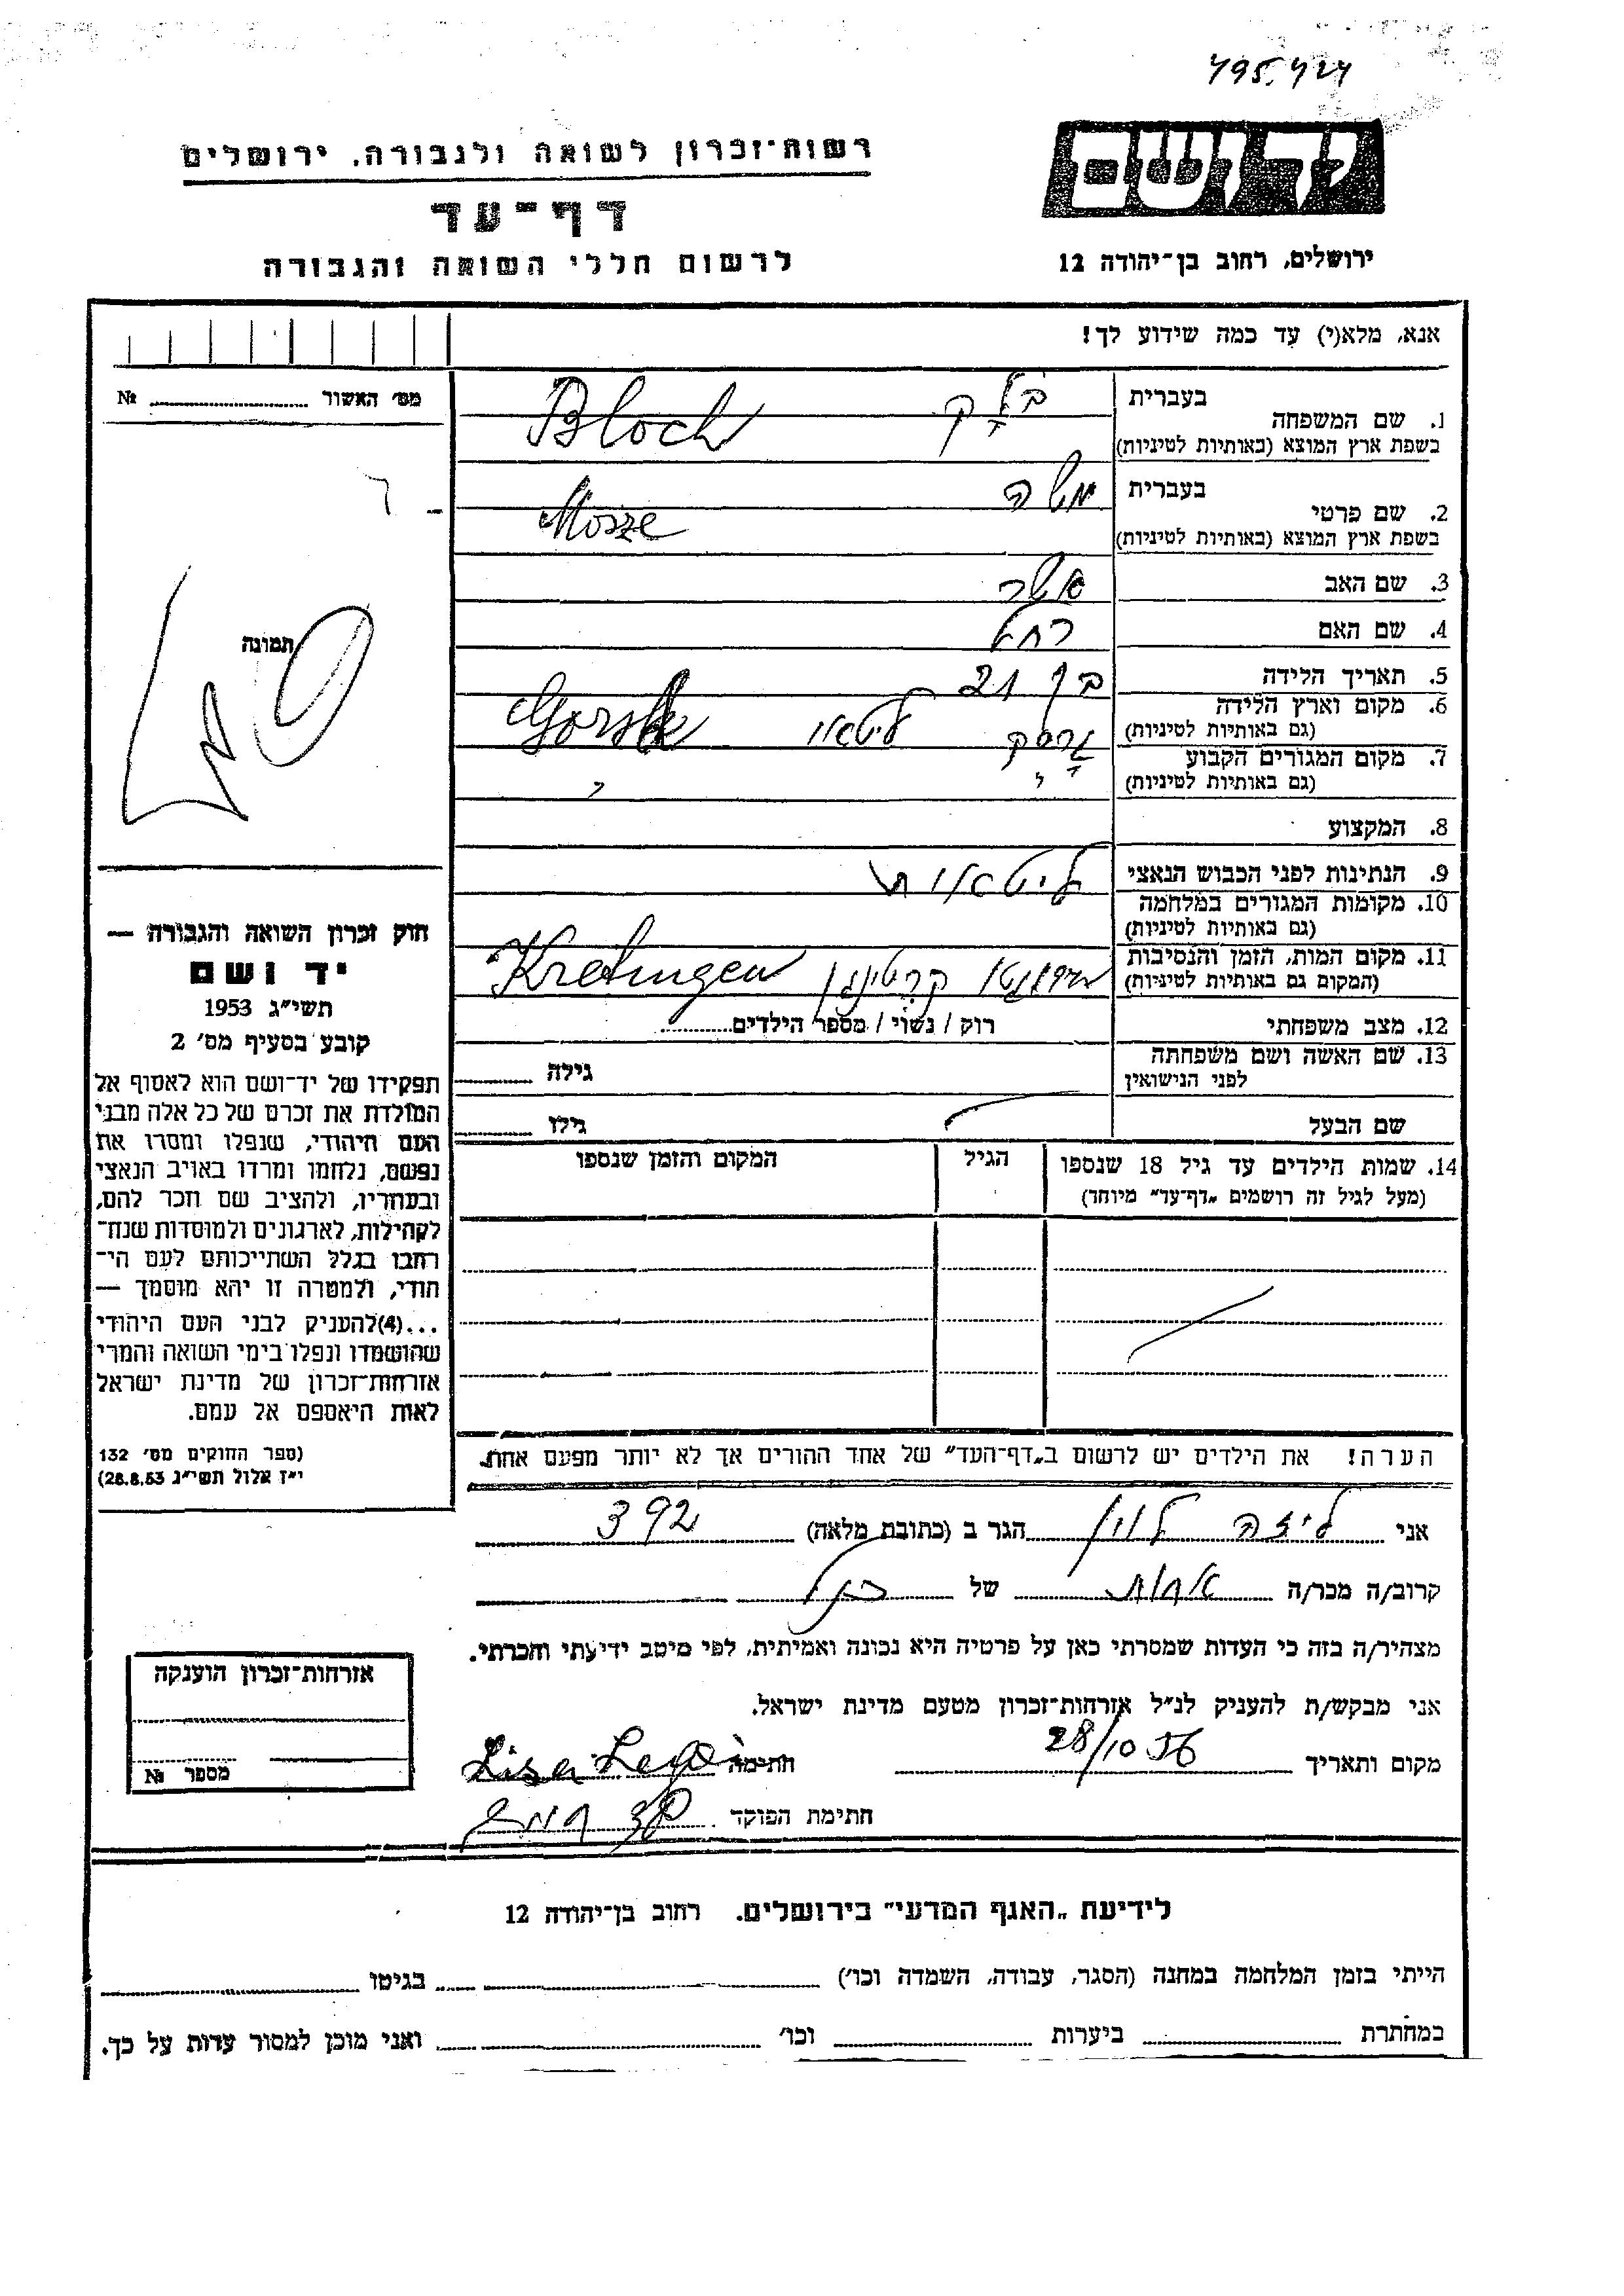 495.424
רשות־זכרון לשואה ולגבורה, ירושלים
יד ושם
דף־עד
לרשום חללי השואה והגבורה
ירושלים, רחוב בן־יהודה 12
אנא, מלא(י) עד כמה שידוע לך!
מס׳ האשור № 
1. שם המשפחה
בעברית בלק
בשפת ארץ המוצא (באותיות לטיניות) Bloch
2. שם פרטי
בעברית משה
בשפת ארץ המוצא (באותיות לטיניות) Mosze
3. שם האב אשר
4. שם האם רחל
5. תאריך הלידה בן 21
6. מקום וארץ הלידה
(גם באותיות לטיניות) ליטא
7. מקום המגורים הקבוע
(גם באותיות לטיניות)
8. המקצוע
9. הנתינות לפני הכבוש הנאצי ליטאית
10. מקומות המגורים במלחמה
(גם באותיות לטיניות)
11. מקום המות, הזמן והנסיבות
(המקום גם באותיות לטיניות) קרטינגן Kretingen
12. מצב משפחתי רוק / נשוי / מספר הילדים
13. שם האשה ושם משפחתה
לפני הנישואין גילה
שם הבעל גילו
14. שמות הילדים עד גיל 18 שנספו הגיל המקום והזמן שנספו
(מעל לגיל זה רושמים „דף־עד״ מיוחד)
תמונה
חוק זכרון השואה והגבורה —
יד ושם
תשי״ג 1953
קובע בסעיף מס׳ 2
תפקידו של יד־ושם הוא לאסוף אל
המולדת את זכרם של כל אלה מבני
העם היהודי, שנפלו ומסרו את
נפשם, נלחמו ומרדו באויב הנאצי
ובעוזריו, ולהציב שם וזכר להם,
לקהילות, לארגונים ולמוסדות שנח־
רבו בגלל השתייכותם לעם הי־
הודי, ולמטרה זו יהא מוסמך —
...(4)להעניק לבני העם היהודי
שהושמדו ונפלו בימי השואה והמרי
אזרחות־זכרון של מדינת ישראל
לאות היאספם אל עמם.
(ספר החוקים מס׳ 132
י״ז אלול תשי״ג 28.8.53)
הערה! את הילדים יש לרשום ב„דף־העד״ של אחד ההורים אך לא יותר מפעם אחת.
אני ליזה לוין הגר ב (כתובת מלאה) 392
קרוב/ה מכר/ה אחות של
מצהיר/ה בזה כי העדות שמסרתי כאן על פרטיה היא נכונה ואמיתית, לפי מיטב ידיעתי והכרתי.
אני מבקש/ת להעניק לנ״ל אזרחות־זכרון מטעם מדינת ישראל.
מקום ותאריך 28/10 56 חתימה Lisa
חתימת הפוקד
אזרחות־זכרון הוענקה
מספר №
לידיעת „האגף המדעי״ בירושלים. רחוב בן־יהודה 12
הייתי בזמן המלחמה במחנה (הסגר, עבודה, השמדה וכו׳) בגיטו
במחתרת ביערות וכו׳ ואני מוכן למסור עדות על כך.